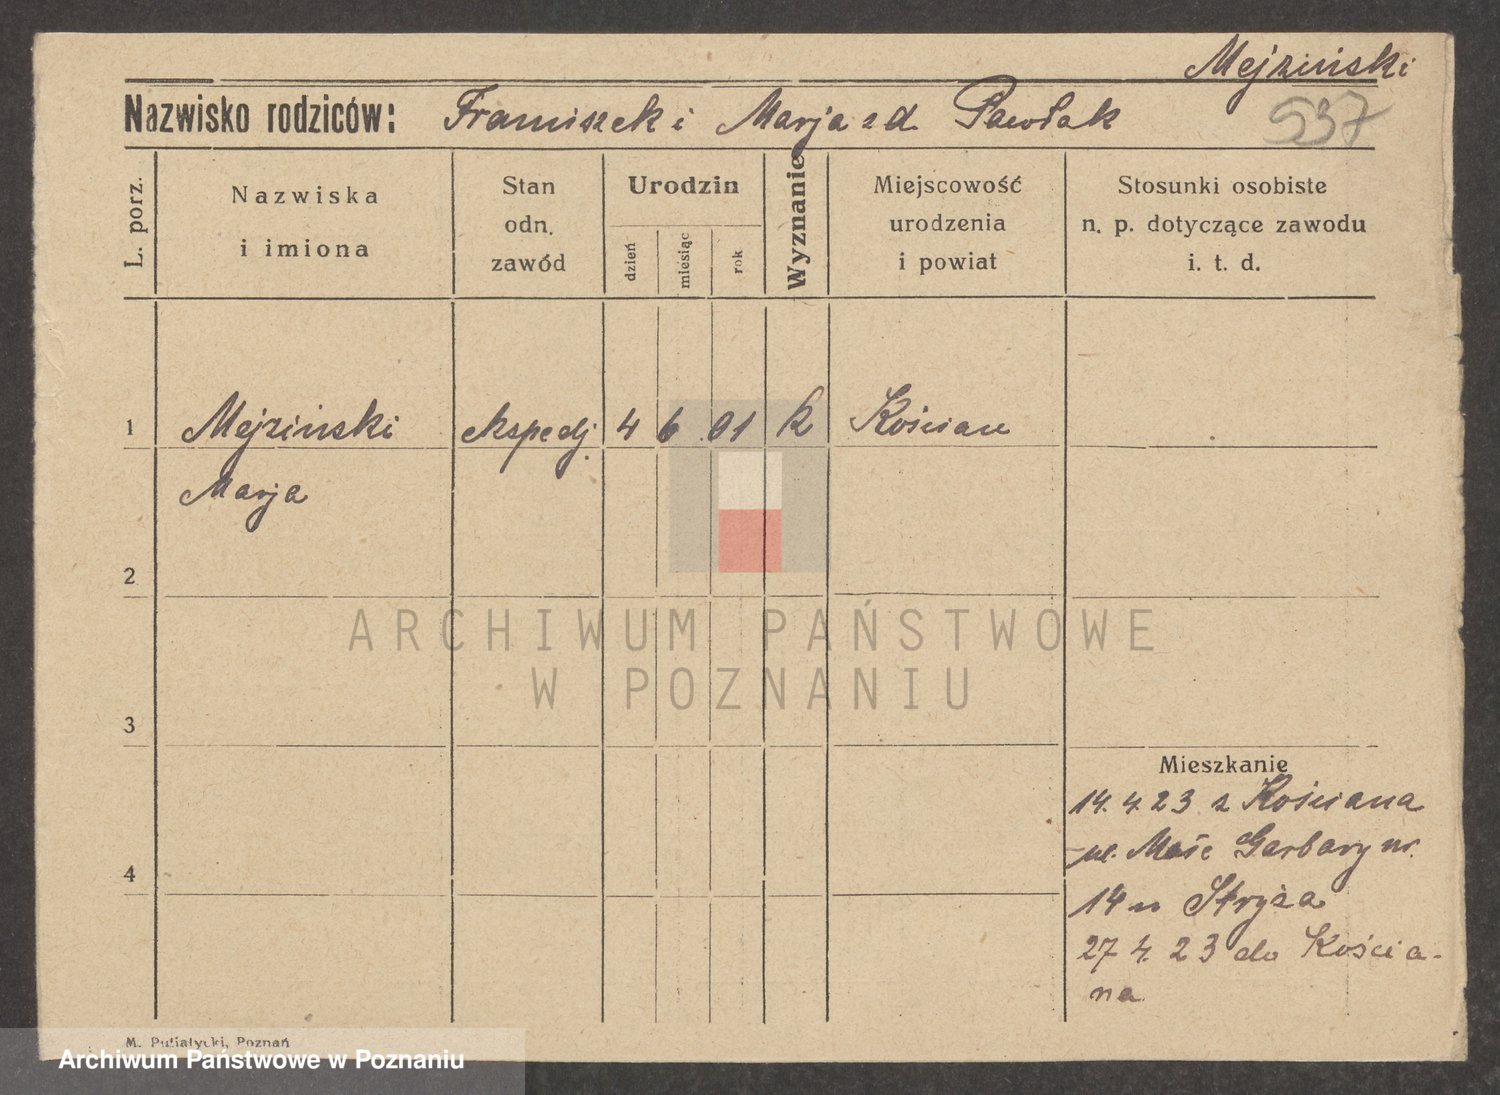 Mejziński
537
Nazwisko rodziców: Franiszek i Marja z d. Pawlak
L. porz.
Nazwiska
i imiona
Stan
odn.
zawód
Urodzin
dzień
miesiąc
rok
Wyznanie
Miejscowość
urodzenia
i powiat
Stosunki osobiste
n. p. dotyczące zawodu
i. t. d.
1 Mejziński ekspedj. 4 6 01 k Kościan
Marja
2
3
4
ARCHIWUM PAŃSTWOWE
W POZNANIU
Mieszkanie
14.4.23 z Kościana
ul. Małe Garbary nr.
14 u Stryża
27 4. 23 do Kościa-
na
M. Putiatycki, Poznań
Archiwum Państwowe w Poznaniu